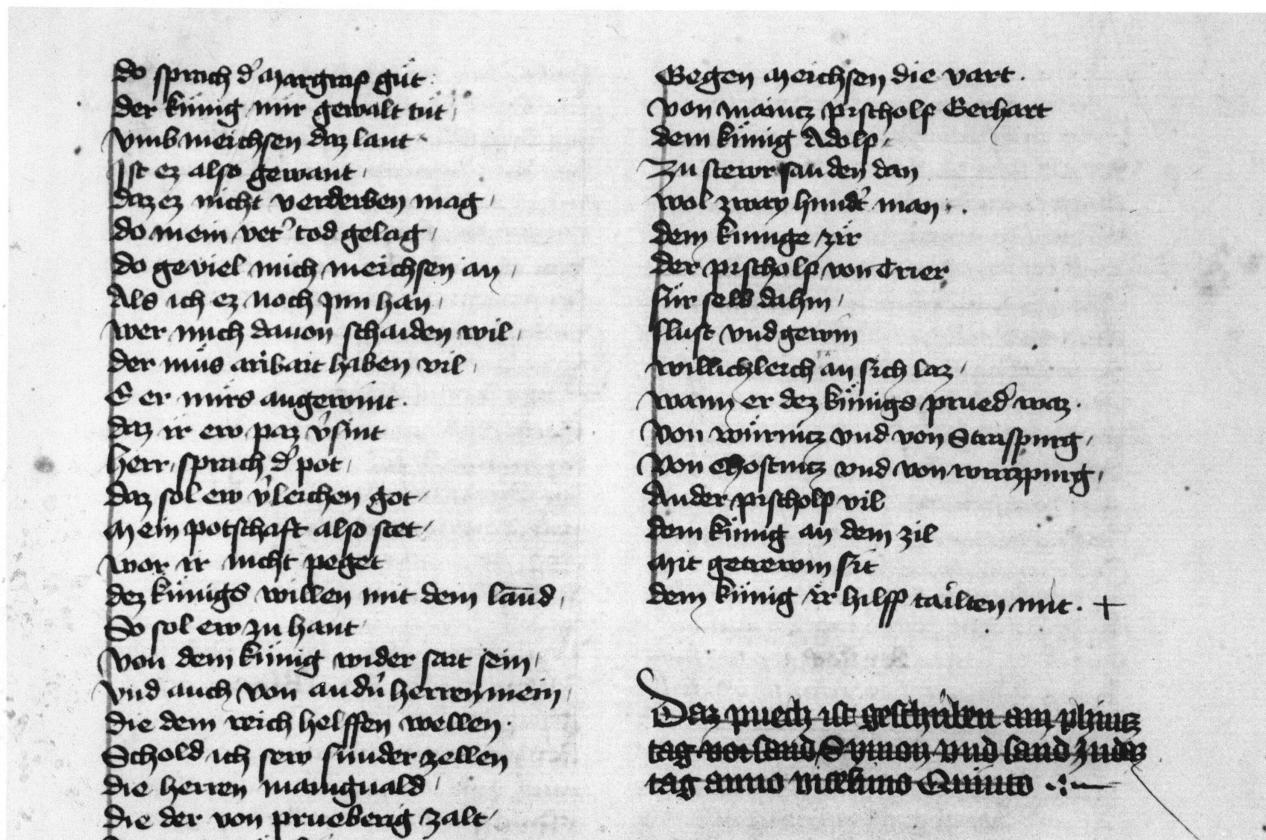 do sprach d' Margraf gůt
der künig mir gewalt tůt
vmb meichsen daz lant
Ist ez also gewant
daz ez nicht verderben mag
do mein vet' tod gelag
do geviel mich meichsen an
Als ich ez noch Inn han
wer mich dauon schaiden wil
der můs aribait haben vil
E er mirs angewint
daz ir ew paz v'sint
herr sprach d' pot
daz sol ew v'leichen got
Mein potschaft also stet
wor ir nicht peget
dez künigs willen mit dem lannd
So sol ew zu hant
von dem künig wider sait sein
vnd auch von andn' herren mein
die dem reich helffen wellen
Schold ich sew sunder zellen
die herren maniguald
die der von prueberig zalt
Gegen Meichsen die vart
von maincz pischolf Gerhart
dem künig Adolf
zu stewr san den dan
wol zway hund't man
dem kunige zir
der pischolf von Trier
für selb dahin
flust vnd gewin
willichleich an sich laz
wann er dez künigs prued' waz
von würmcz vnd von Straspurg
von Chostnicz vnd von wirczpurg
Ander pischolf vil
dem künig an dem zil
Mit getrewm sit
dem künig ir hilff tailten mit
Daz puech ist geschriben am phincz
tag vor sand Symon vnd sand Judas
tag anno Quinto